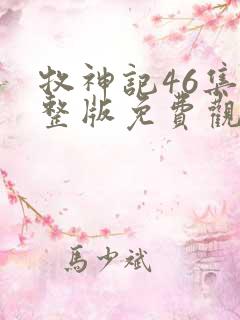 牧神記46集
整版免費觀
馬少斌